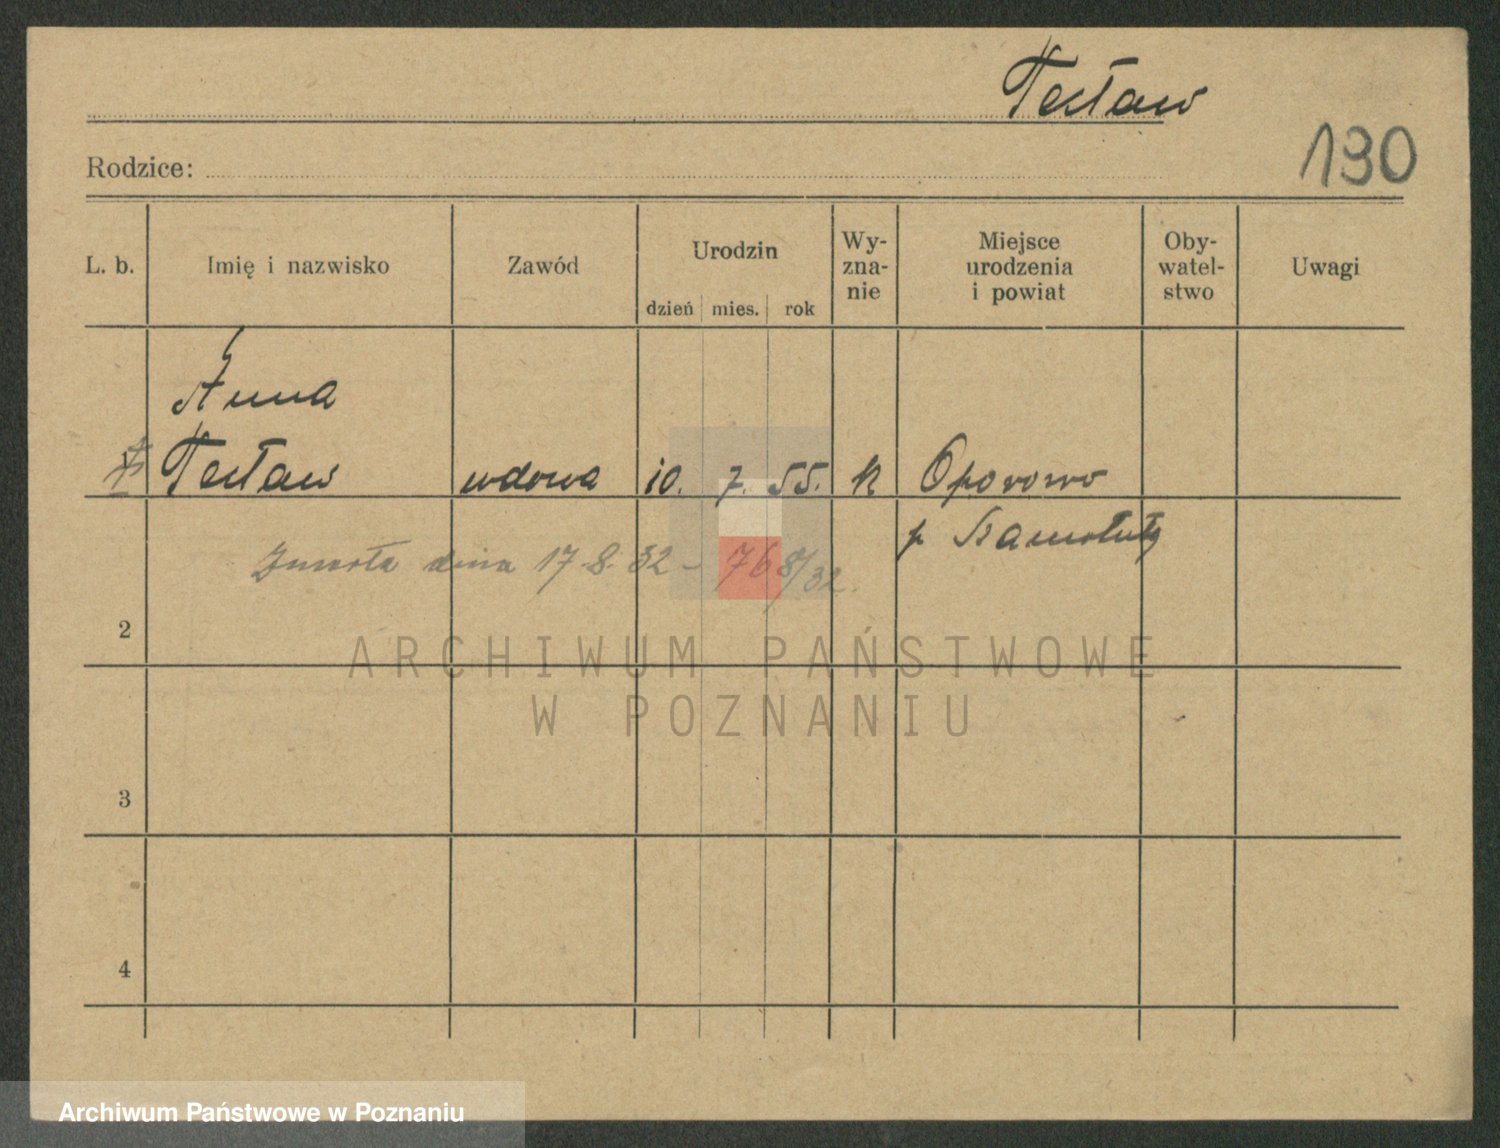 Tesław
190
Rodzice:
L. b.
Imię i nazwisko
Zawód
Urodzin
dzień mies. rok
Wy-
zna-
nie
Miejsce
urodzenia
i powiat
Oby-
watel-
stwo
Uwagi
Anna
Tesław wdowa 10. 7. 55. k Oporowo
p Szamotuły
Zmarła dnia 17.8.32 – 768/32.
2
3
4
ARCHIWUM PAŃSTWOWE
W POZNANIU
Archiwum Państwowe w Poznaniu